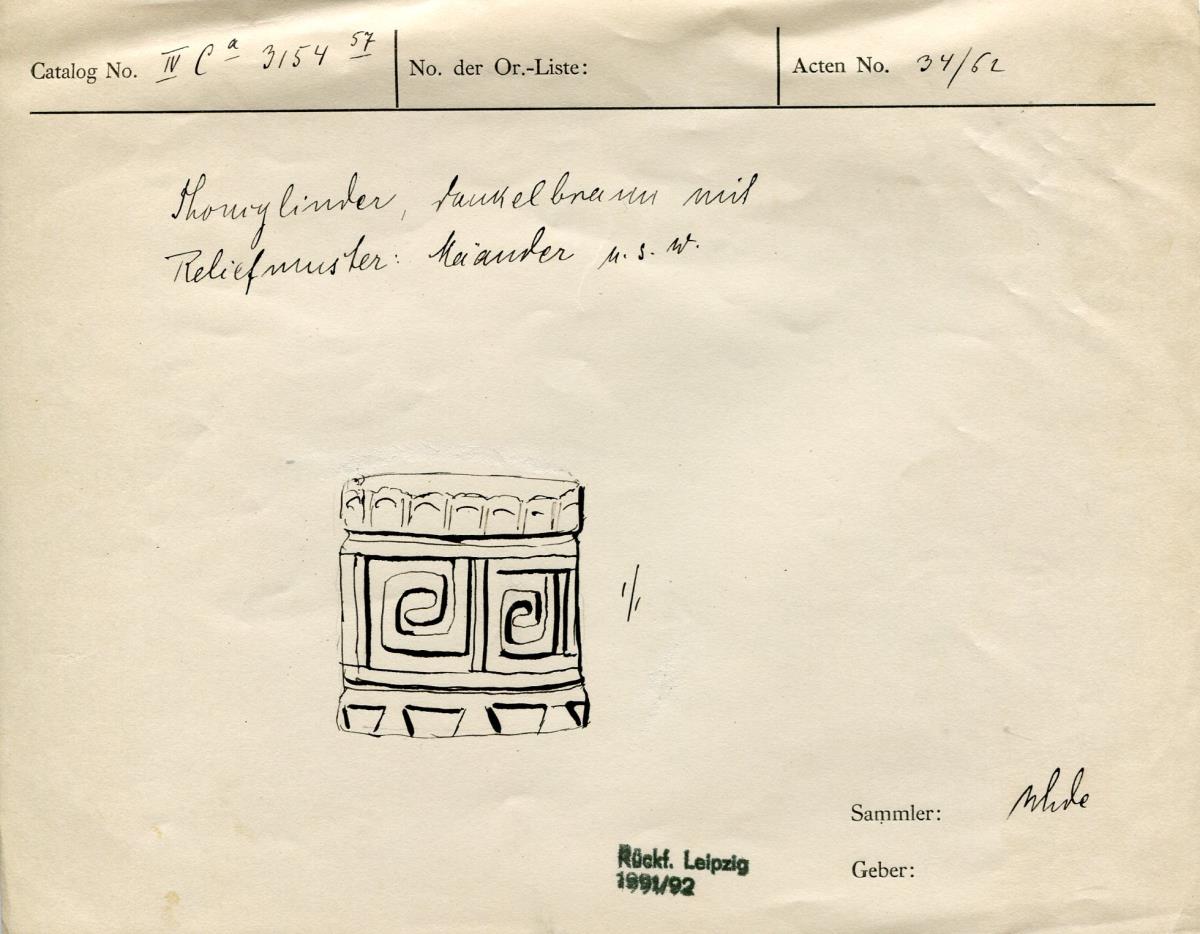 Catalog No. IV Ca 3154 57
No. der Or.-Liste:
Acten No. 34/62
Thoncylinder, dunkelbraun mit
Reliefmuster: Mäander u. s. w.
1/1
Sammler: Uhde
Rückf. Leipzig
1991/92
Geber: